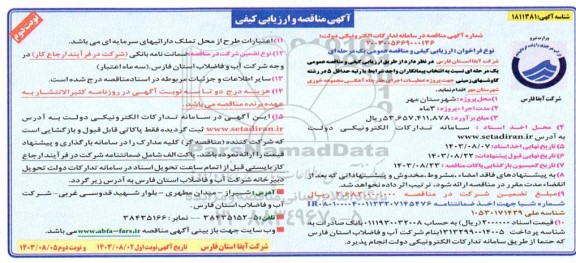 شناسه آگهی: ۱۸۱۱۳۸۱
آگهی مناقصه و ارزیابی کیفی
نوبت دوم
وزارت نیرو
شرکت آبفا فارس
شماره آگهی مناقصه در سامانه تدارکات الکترونیکی دولت:
۲۰۰۳۰۰۵۶۶۹۰۰۰۱۳۶
نوع فراخوان: ارزیابی کیفی و مناقصه عمومی یک مرحله ای
شرکت آبفا استان فارس در نظر دارد از طریق ارزیابی کیفی و مناقصه عمومی
یک مرحله ای نسبت به انتخاب پیمانکاران واجد شرایط با رتبه حداقل ۵ در رشته
شهرستان مهر اقدام نماید.
۱) محل پروژه: شهرستان مهر
۲) مدت اجرا پروژه: ۳ ماه
۳) مبلغ برآورد: ۵۳.۶۵۷.۴۱۱.۸۷۸ ریال
۴) محل اخذ اسناد: سامانه تدارکات الکترونیکی دولت
به آدرس www.setadiran.ir
۵) تاریخ نهایی اخذ اسناد: ۱۴۰۳/۰۸/۰۷
۶) تاریخ نهایی قبول پیشنهادات: ۱۴۰۳/۰۸/۲۲
۷) تاریخ کمیسیون بازگشایی پاکات مناقصه: ۱۴۰۳/۰۸/۲۳
۸) به پیشنهادهای فاقد امضاء، مشروط، مخدوش و پیشنهاداتی که بعد از
انقضاء مدت مقرر در مناقصه ارائه شود، ترتیب اثر داده نخواهد شد.
شناسه ملی ۱۰۵۳۰۱۷۱۴۳۹
که حتما از طریق سامانه تدارکات الکترونیکی دولت انجام پذیرد.
۱۱) اعتبارات طرح از محل تملک دارائیهای سرمایه ای می باشد.
۱۲) نوع تضمین شرکت در مناقصه: ضمانت نامه بانکی (شرکت در فرآیند ارجاع کار) در
وجه شرکت آب و فاضلاب استان فارس (سه ماه اعتبار)
۱۳) سایر اطلاعات و جزئیات مربوطه در اسناد مناقصه درج شده است.
۱۴) هزینه درج دو تا سه نوبت آگهی در روزنامه کثیرالانتشار به
عهده برنده مناقصه می باشد.
۱۵) این آگهی در سامانه تدارکات الکترونیکی دولت به آدرس
www.setadiran.ir ثبت گردیده فقط پاکاتی قابل قبول و بازگشایی است
که شرکت کننده (مناقصه گر) کلیه مدارک را در سامانه بارگذاری و پیشنهاد
قیمت را ارائه نموده باشد. پاکت الف شامل ضمانتنامه شرکت در فرآیند ارجاع
کار بایستی قبل از اتمام ساعت تحویل اسناد در سامانه تدارکات دولت تحویل
دبیرخانه شرکت آب و فاضلاب استان فارس به آدرس زیر گردد.
آدرس: شیراز - میدان مطهری - بلوار شهید قدوسی غربی - شرکت
آب و فاضلاب استان فارس.
وب سایت جهت بازبینی آگهی مناقصه www.abfa-fars.ir می باشد.
شرکت آبفا استان فارس
تاریخ آگهی نوبت اول ۱۴۰۳/۰۸/۰۲ و نوبت دوم ۱۴۰۳/۰۸/۰۵